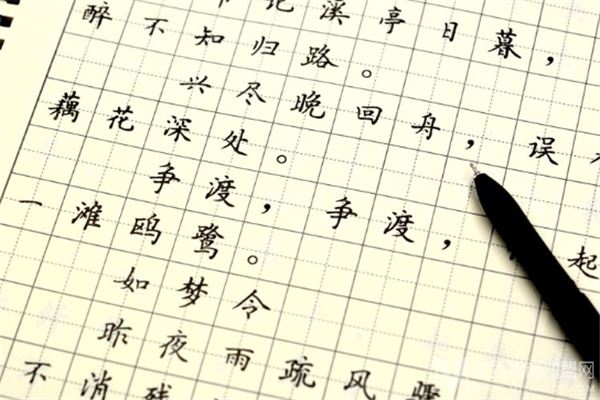 记溪亭日暮，
醉不知归路。
兴尽晚回舟，误
藕花深处。
争渡，争渡，起
一滩鸥鹭。
如梦令
昨夜雨疏风骤
不消残